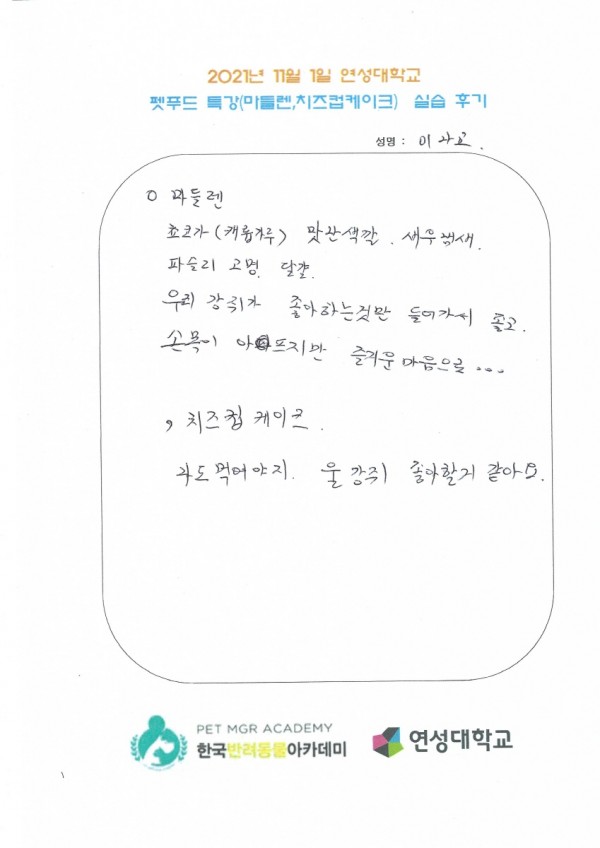 2021년 11월 1일 연성대학교
펫푸드 특강(마들렌,치즈컵케이크) 실습 후기
성명 : 이
○ 마들렌
쵸코가 (캐롭가루) 맛난색깔. 새우냄새.
파슬리 고명. 달걀.
우리 강쥐가 좋아하는것만 들어가서 좋고.
손목이 아프지만 즐거운 마음으로...
, 치즈컵 케이크.
나도 먹어야지. 울 강쥐 좋아할거 같아요.
PET MGR ACADEMY
한국반려동물아카데미
연성대학교